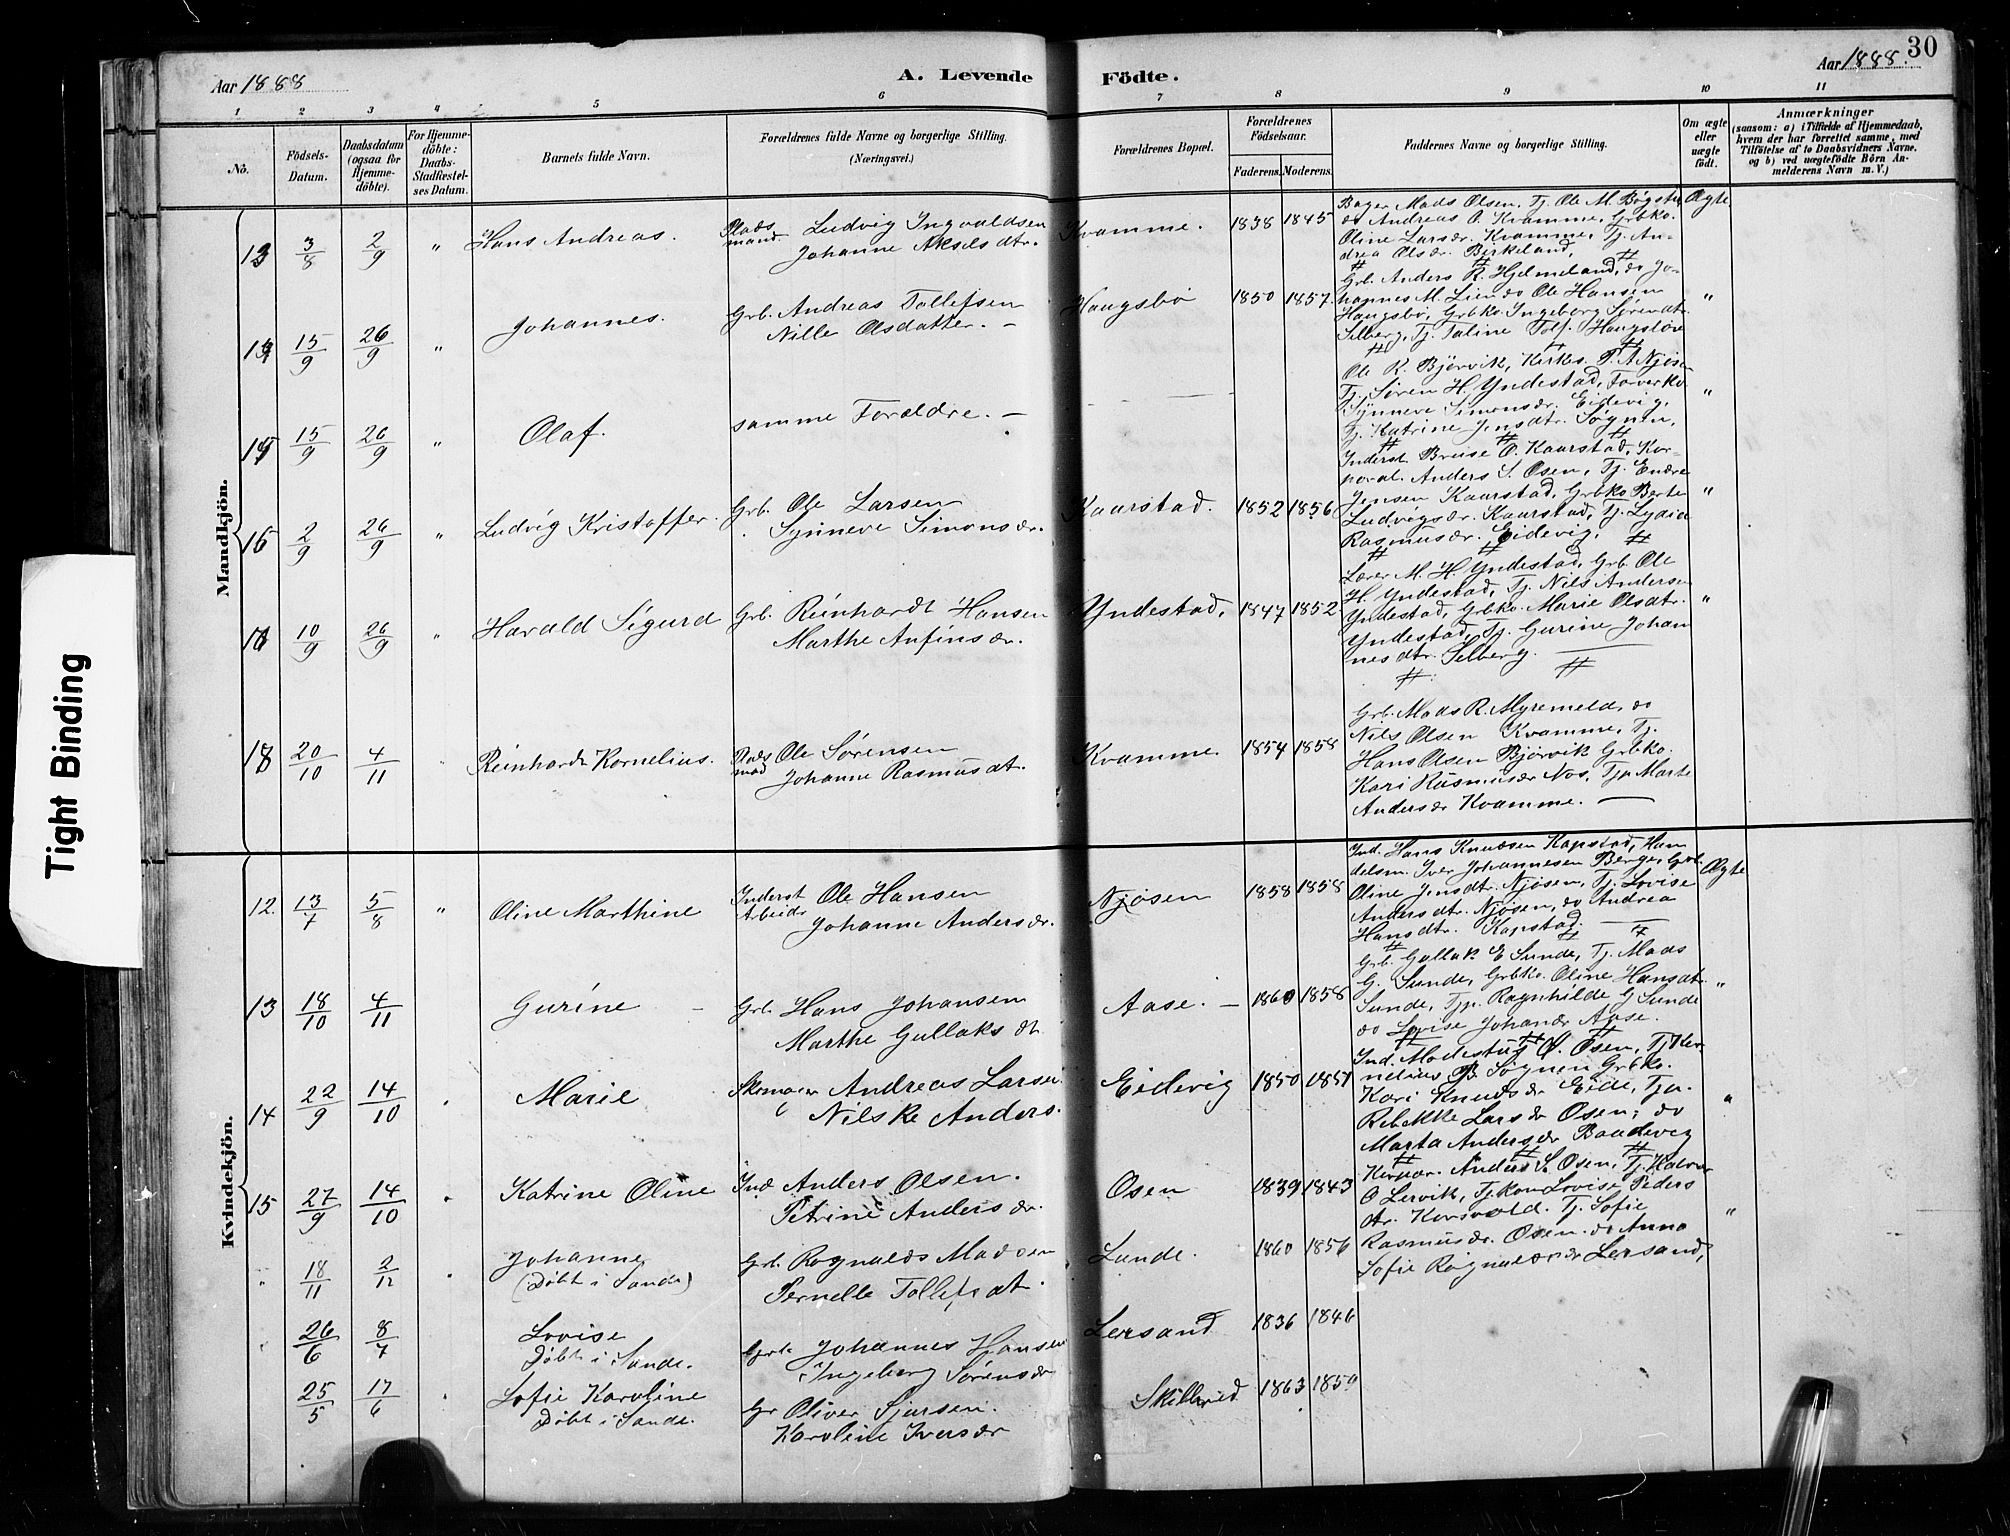 30
Aar 1888
A. Levende
Födte.
Aar 1888.
1 2 3 4 5 6 7 8 9 10 11
No.
Födsels-Datum.
Daabsdatum (ogsaa for Hjemmedöbte).
For Hjemmedöbte: Daabs-Stadfæstelses Datum.
Barnets fulde Navn.
Forældrenes fulde Navne og borgerlige Stilling. (Næringsvei.)
Forældrenes Bopæl.
Forældrenes Födselsaar.
Faderens. Moderens.
Faddernes Navne og borgerlige Stilling.
Om ægte eller uægte födt.
Anmærkninger
(saasom: a) i Tilfælde af Hjemmedaab, hvem der har forrettet samme, med Tilföielse af to Daabsvidners Navne. og b) ved uægtefödte Börn Anmelderens Navn m. V.)
Mandkjön.
13 3/8 2/9 " Hans Andreas. Pladsmand Ludvig Ingvaldsen
Johanne Akselsdtr. Kvamme. 1838 1845
Bager Mads Olsen, Tj. Ole M. Bøgstu
do Andreas O. Kvamme, Grbko.
Oline Larsdr. Kvamme, Tj. An-
drea Olsdr. Birkeland, Ægte
14 15/9 26/9 " Johannes. Grb. Andreas Tollefsen
Nille Olsdatter. – Haugsbø 1850 1857.
Grb. Anders R. Hjelmeland, do Jo-
hannes M. Lien do Ole Hansen
Haugsbø, Grbko. Ingeborg Sørendtr.
Selberg, Tj. Taline Tolf. Haugsbøe "
15 15/9 26/9 " Olaf. samme Forældre. –
Ole K. Bjørvik, Kirkes. P. A. Njøsen
Tj. Søren H. Yndestad, Forverko
Synneve Simonsdr. Eidevig,
Tj. Katrine Jensdtr. Søgnen, "
16 2/9 26/9 " Ludvig Kristoffer. Grb. Ole Larsen
Synneve Simonsdr. Kaarstad. 1852 1856
Inderst. Breise O. Kaarstad, Kor-
poral. Anders S. Osen, Tj. Endre
Jensen Kaarstad, Grbko Berte
Ludvigsdr. Kaarstad, Tj. Lydia
Rasmusdr. Eidevig, "
10/9 26/9 " Harald Sigurd Grb. Reinhardt Hansen
Marthe Anfinsdr. Yndestad, 1847 1852.
Lærer M. H. Yndestad, Grb. Ole
H. Yndestad, Tj. Nils Andersen
Yndestad, Grbko. Marie Olsdtr.
Yndestad, Tj. Gurine Johan
nesdtr. Selberg. "
18 20/10 4/11 Reinhardt Kornelius. Pladsmad Ole Sørensen
Johanne Rasmusdt. Kvamme. 1854 1858
Grb. Mads R. Myremeld, do
Nils Olsen Kvamme, Tj.
Hans Olsen Bjørvik Grbko.
Kari Rasmusdr Nos, Tjp Marte
Andersdr Kvamme. —
Kvindekjön.
12. 13/7 5/8 " Oline Marthine Inderst Arbeidr Ole Hansen
Johanne Andersdr. Njøsen 1858 1858
Ind. Hans Knudsen Kapstad, Han
delsm. Iver Johannesen Berge, Grb.
Oline Jensdtr. Njøsen, Tj. Lovise
Andersdtr. Njøsen, do Andrea
Hansdtr. Kapstad. Ægte
13 18/10 4/11 Gurine – Grb. Hans Johansen
Marthe Gullaksdt. Aase. – 1860 1858
Grb. Gullak E Sunde, Tj. Mads
G. Sunde, Grbko. Oline Hansdt.
Sunde, Tjp. Ragnhilde G Sunde
do Lovise Johandr Aase. "
14 22/9 14/10 Marie Skomager Andreas Larsen
Nilske Anders. Eidevig 1850 1851
Ind. Modestus O. Osen, Tj Kor
nelius B. Søgnen Grbko.
Kari Knudsdr Eide, Tja.
Rebekke Larsdr Osen, do
Marta Andersdr Baadevig "
15 27/9 14/10 Katrine Oline Ind Anders Olsen.
Petrine Andersdr. Osen 1839 1843
Anders S. Osen, Tj. Halvor
O Lervik, Tjkon Lovise Peders
dtr. Korsvold. Tj. Sofie
Rasmusdr. Osen. do Anna
Sofie Ragnaldsdr Lersand, "
" 18/11 2/12 Johanne
(Døbt i Sande) Grb. Ragnalds Madsen
Pernelle Tollefsdt. Lunde. 1860 1856
26/6 8/7 Lovise
Døbt i Sande. Grb. Johannes Hansen
Ingeborg Sørensdr Lersand 1836 1846
25/5 17/6 Sofie Karoline
Døbt i Sande. Gr Oliver Sjursen.
Karoline Iversdr 1863 1859
Tight Binding